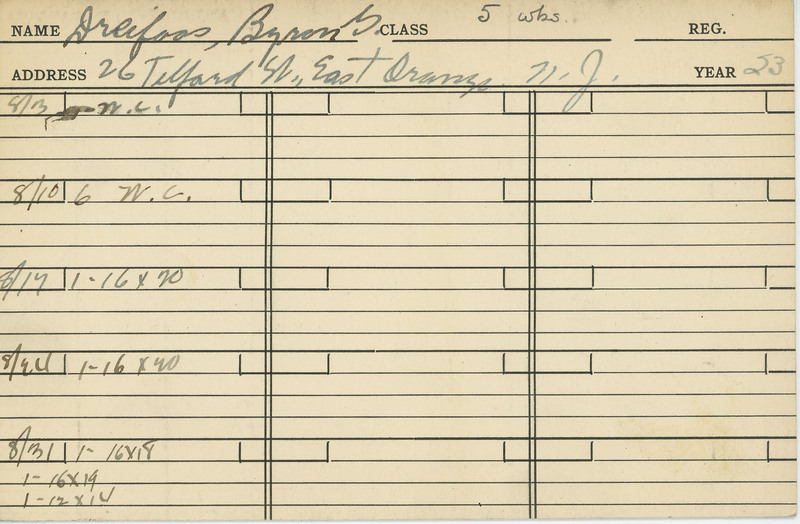 NAME Dreifoos, Byron G. CLASS 5 wks. REG.
ADDRESS 26 Telford St., East Orange, N. J. YEAR 23
8/3 W.C.
8/10 6 W.C.
8/17 1-16x20
8/24 1-16x20
8/31 1-16x18
1-16x19
1-12x14